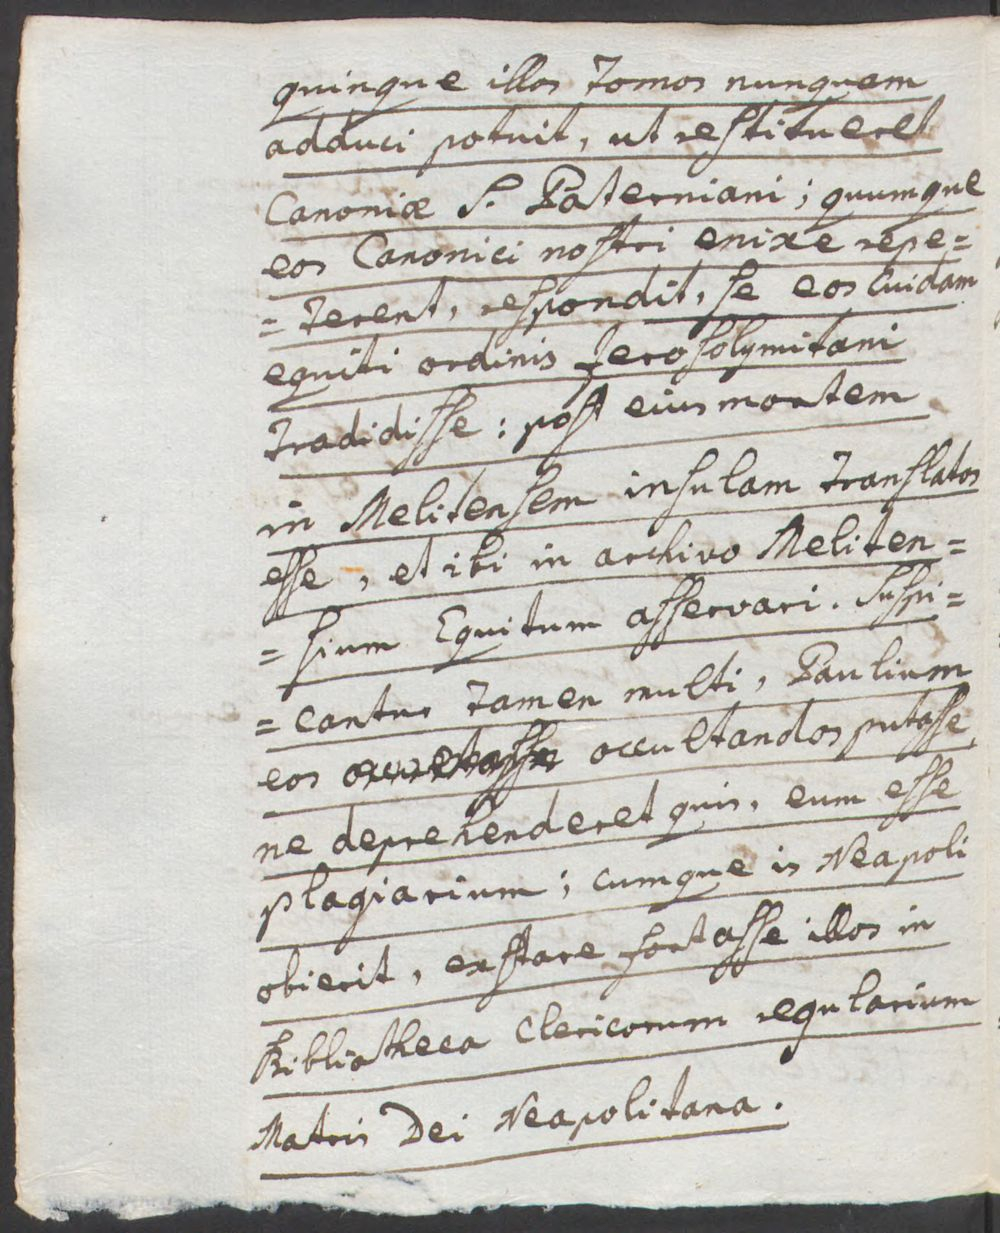 quinque illos Tomos nunquam
adduci potuit, ut restitueret
Canoniæ S. Paterniani; quumque
eos Canonici nostri enixe repe=
=terent, respondit, se eos Cuidam
equiti ordinis Jerosolymitani
tradidisse: post eius mortem
in Melitensem insulam translatos
esse, et ibi in archivo Meliten=
=sium Equitum asservari. Suspi=
=cantur tamen multi, Paulium
eos occultandos putasse,
ne deprehenderet quis, eum esse
plagiarium; cumque is Neapoli
obierit, exstare fortasse illos in
Bibliotheca Clericorum regularium
Matris Dei Neapolitana.